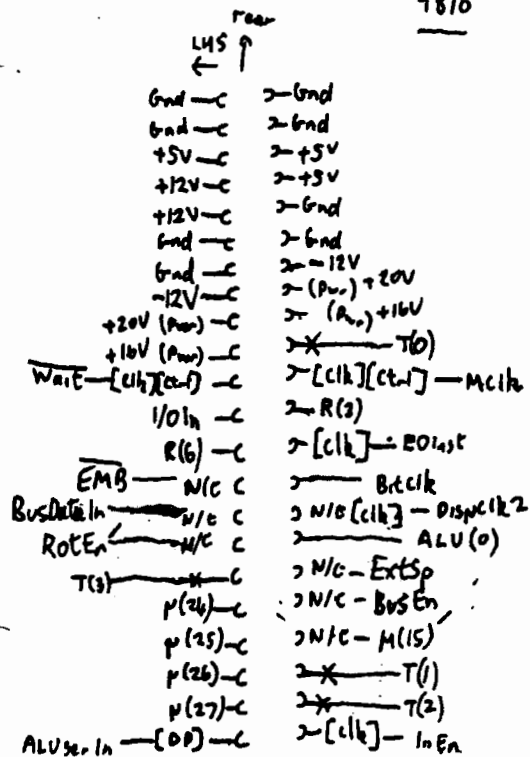 7810
rear
LHS
Gnd Gnd
Gnd Gnd
+5V +5V
+12V +5V
+12V Gnd
Gnd Gnd
Gnd -12V
-12V (Pwr) +20V
+20V (Pwr) (Pwr) +16V
+16V (Pwr) T(0)
Wait [Clk][Ctrl] [Clk][Ctrl] MClk
I/O In R(3)
R(6) [Clk] EOInst
EMB N/C BitClk
BusDataIn N/C N/C [Clk] DispClk2
RotEn N/C ALU(0)
T(3) N/C - ExtSp
μ(24) N/C - BusEn
μ(25) N/C - M(15)
μ(26) T(1)
μ(27) T(2)
ALUSerIn [DP] [Clk] InEn